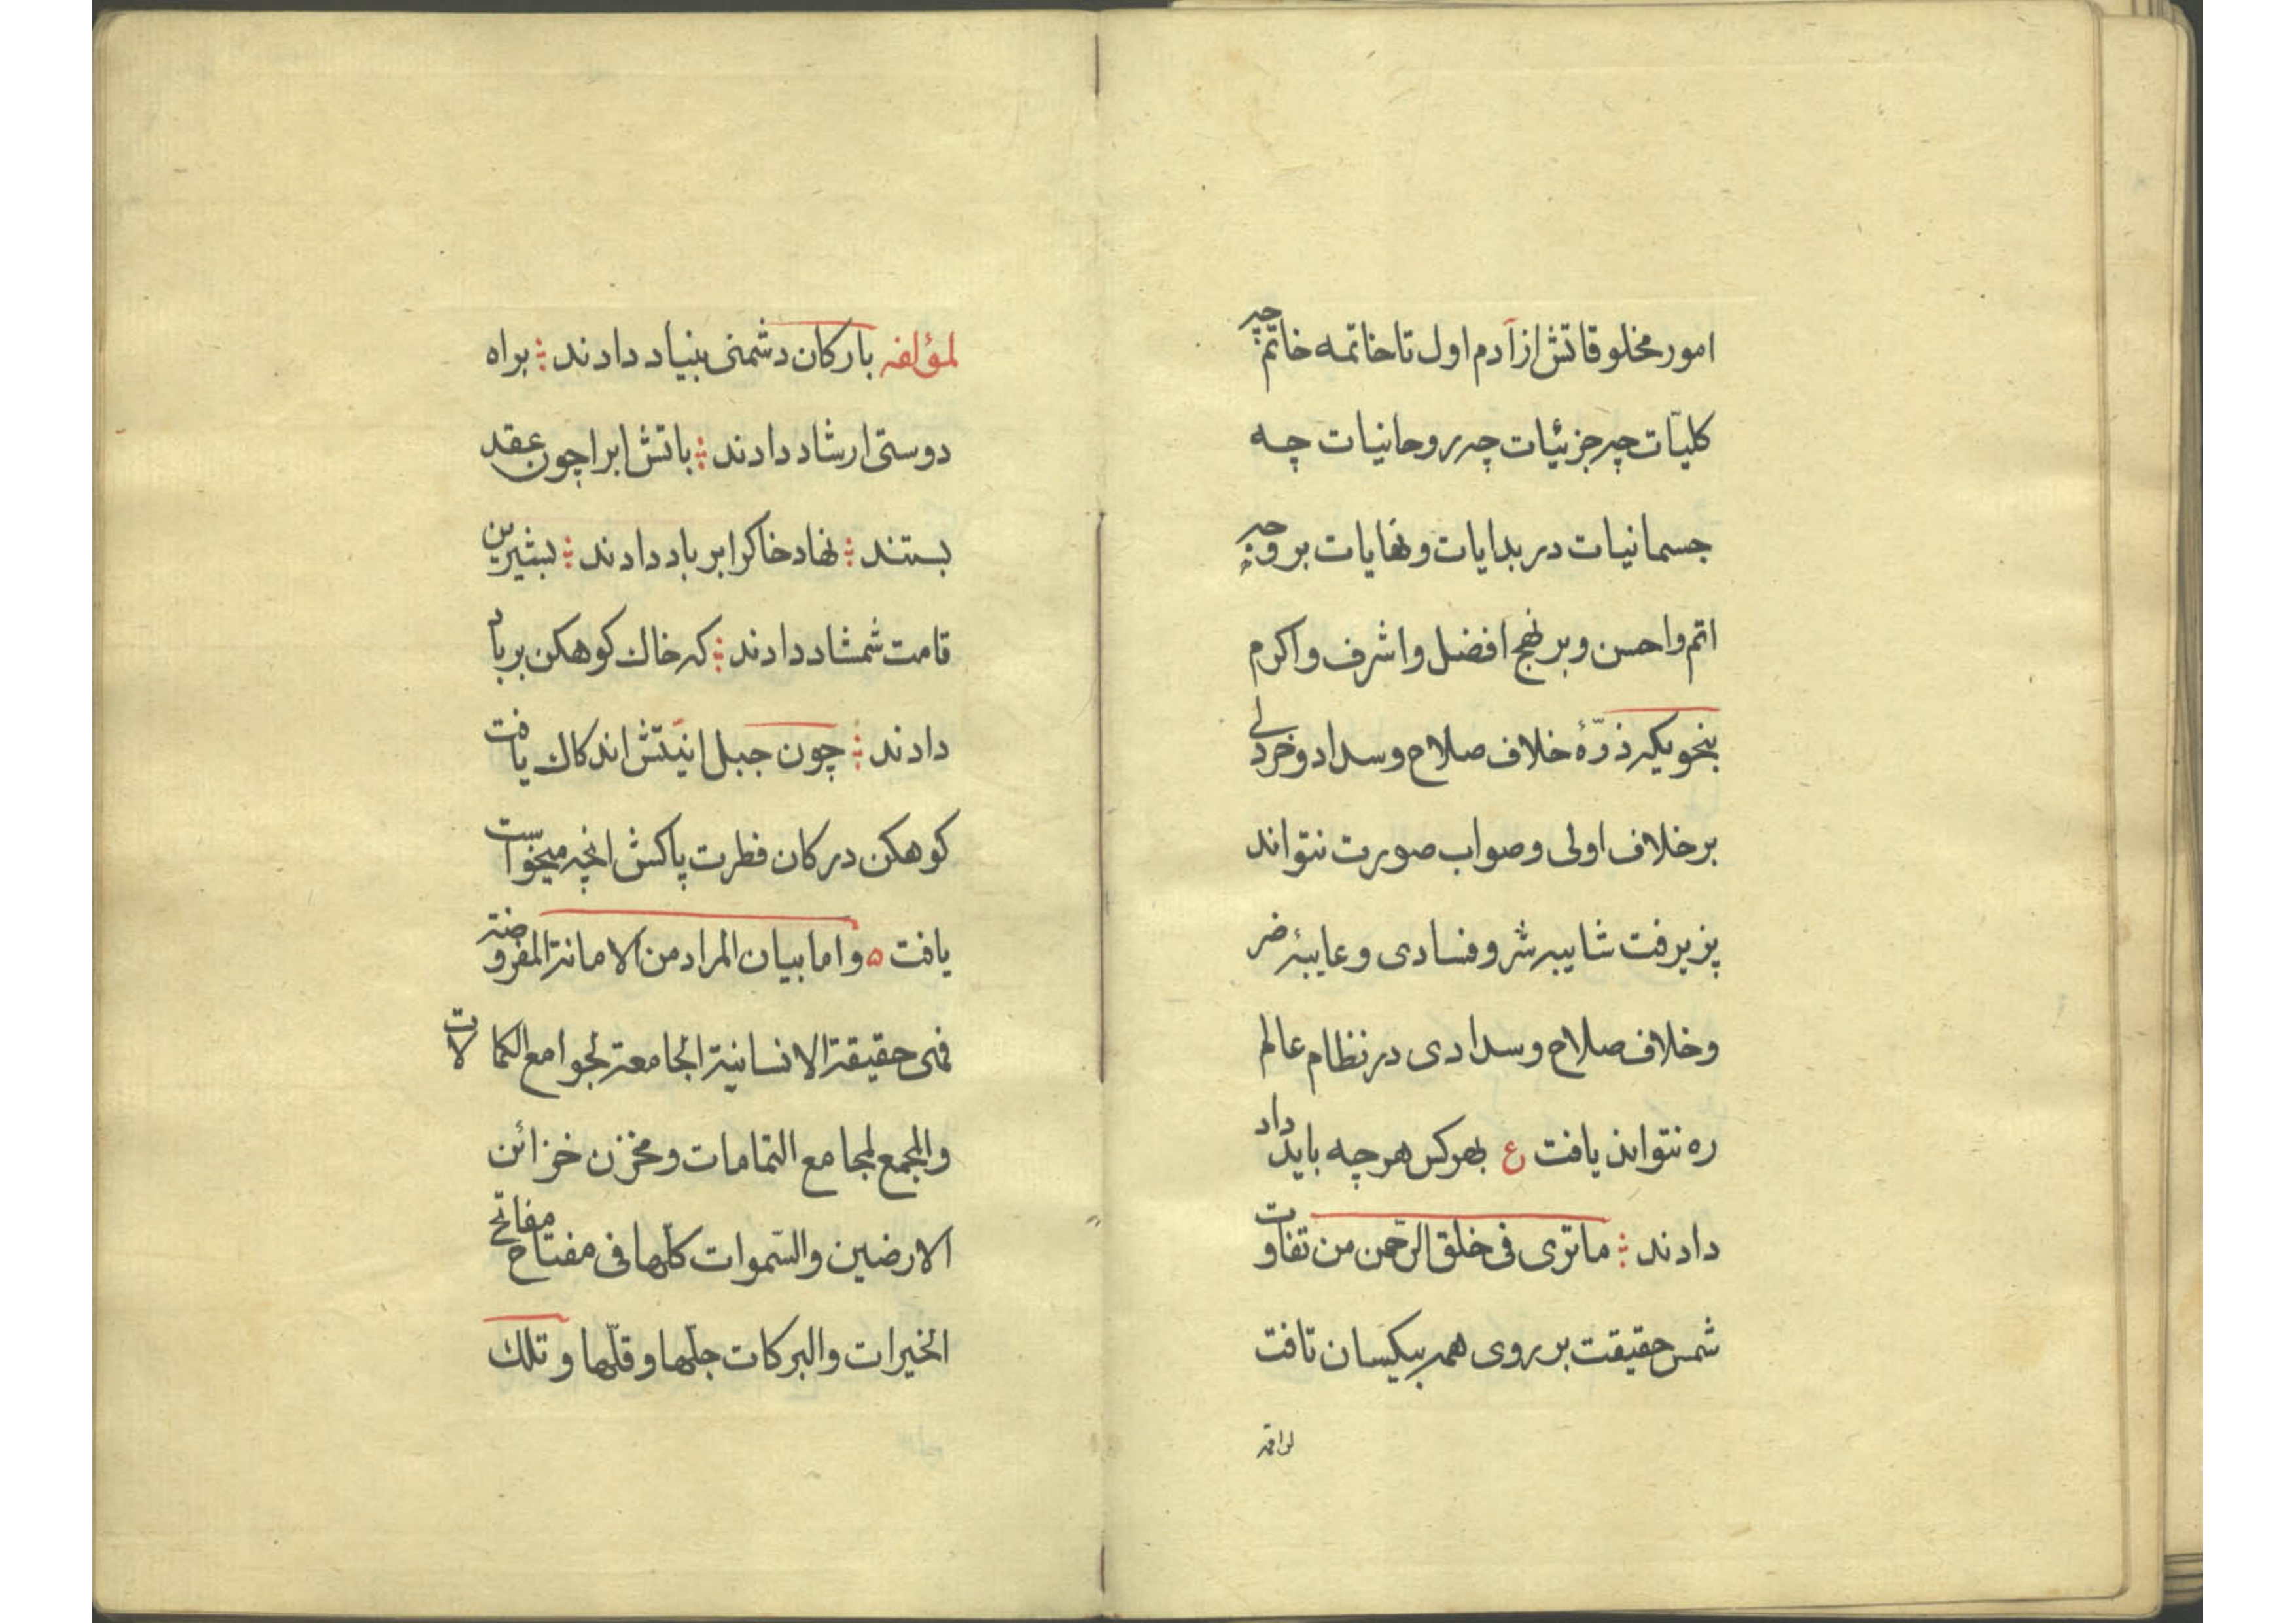 امور مخلوقاتش از آدم اول تا خاتمه خاتم چه
کلیّات چه جزئیات چه روحانیات چه
جسمانیات در بدایات و نهایات بر وجه
اتم و احسن و بر نهج افضل و اشرف و اکرم
بنحویکه ذرّهٔ خلاف صلاح و سداد و خردلی
بر خلاف اولی و صواب صورت نتواند
پزیرفت شایبه شر و فسادی و عایبهٔ ضر
و خلاف صلاح و سدادی در نظام عالم
ره نتواند یافت ع بهر کس هر چه باید داد
دادند ؛ ماتری فی خلق الرّحمن من تفاوت
شمس حقیقت بر روی همه بیکسان تافت
لمؤلفه بارکان دشمنی بنیاد دادند ؛ براه
دوستی ارشاد دادند ؛ باتش ابرا چون عقد
بستند ؛ نهاد خاکرا بر باد دادند ؛ بشیرین
قامت شمشاد دادند ؛ که خاک کوهکن بر باد
دادند ؛ چون جبل انیّتش اندکاک یافت
کوهکن در کان فطرت پاکش انچه میخواست
یافت ۵ و اما بیان المراد من الامانة المفروضة
فهی حقیقة الانسانیة الجامعة لجوامع الکمالات
والمجمع لمجامع التمامات و مخزن خزائن
الارضین والسّموات کلّها فی مفتاح مفاتح
الخیرات والبرکات جلّها و قلّها و تلك